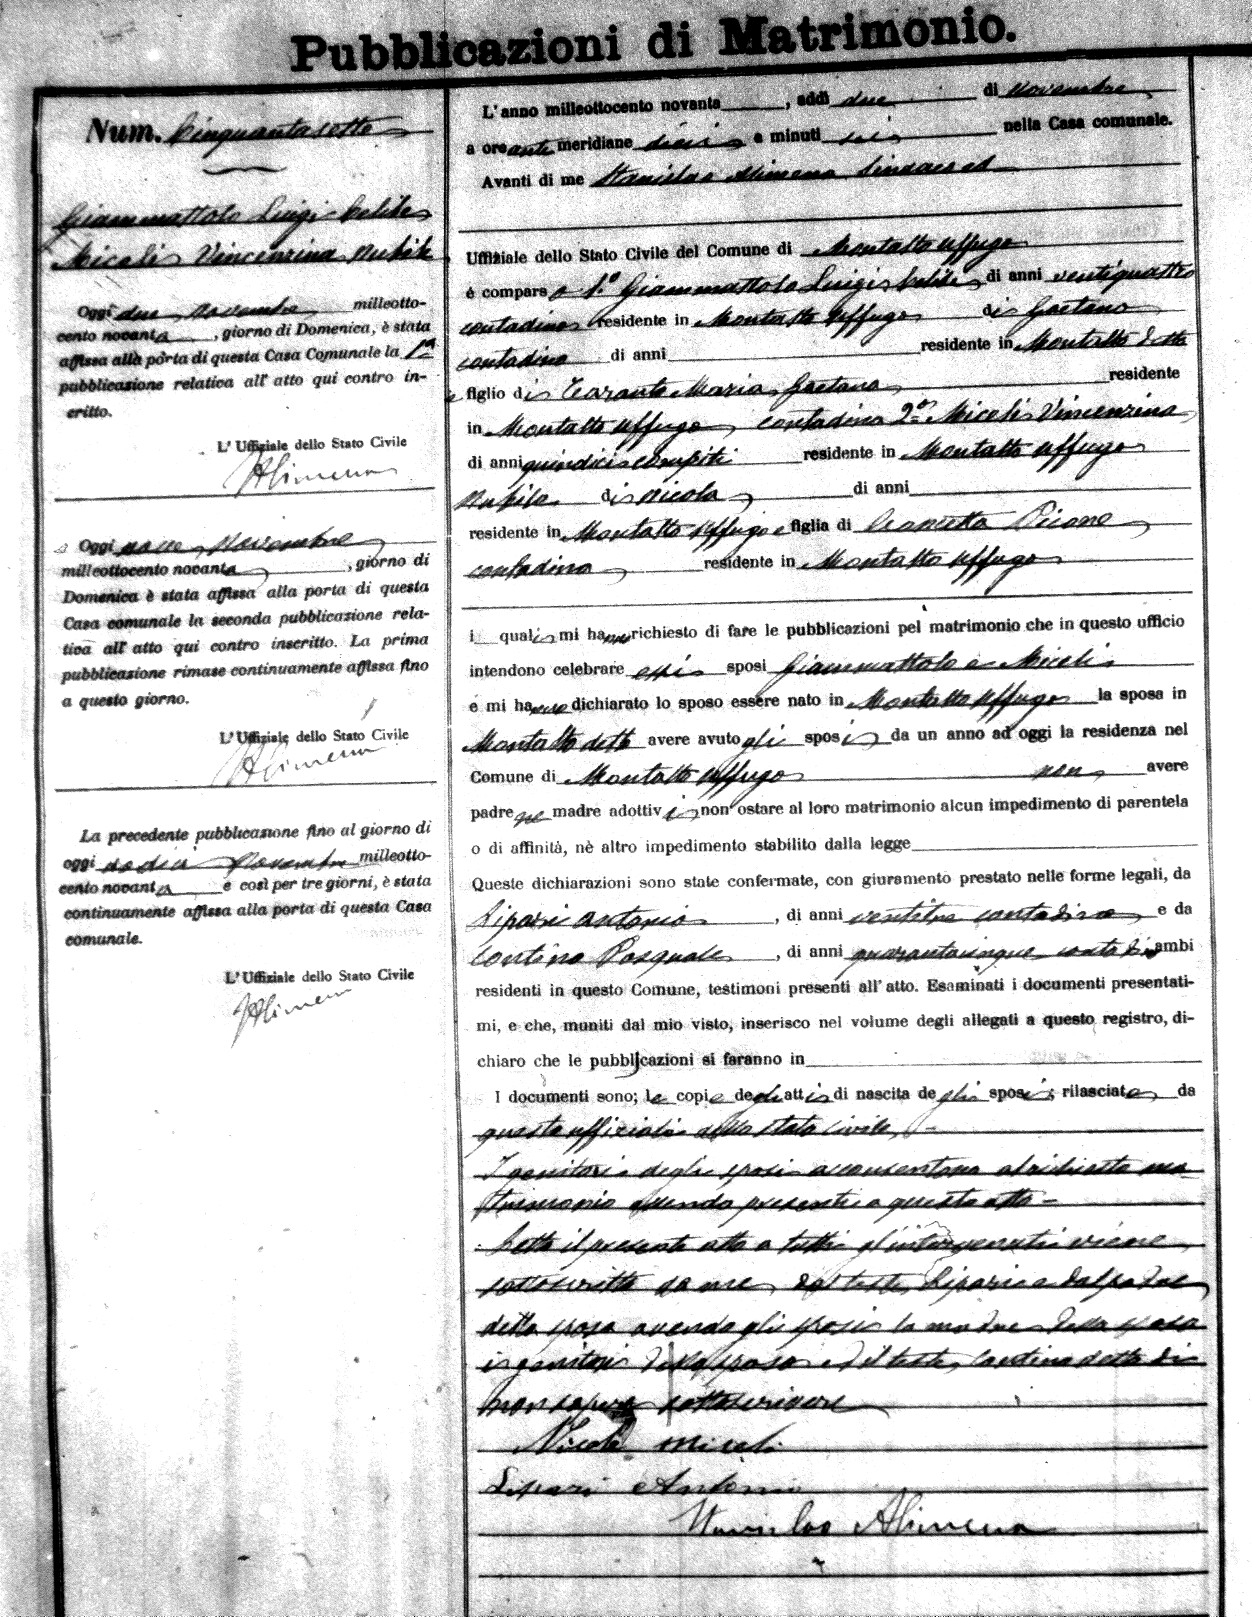 Pubblicazioni di Matrimonio.
Num. Cinquantasette
Giammattolo Luigi Celibe
Miceli Vincenzina Nubile
Oggi due Novembre milleotto-
cento novanta, giorno di Domenica, è stata
affissa alla porta di questa Casa Comunale la 1ª
pubblicazione relativa all' atto qui contro in-
critto.
L' Uffiziale dello Stato Civile
SAlimena
Oggi nove Novembre
milleottocento novanta, giorno di
Domenica è stata affissa alla porta di questa
Casa comunale la seconda pubblicazione rela-
tiva all' atto qui contro inscritto. La prima
pubblicazione rimase continuamente affissa fino
a questo giorno.
L' Uffiziale dello Stato Civile
SAlimena
La precedente pubblicazione fino al giorno di
oggi dodici Novembre milleotto-
cento novanta e così per tre giorni, è stata
continuamente affissa alla porta di questa Casa
comunale.
L' Uffiziale dello Stato Civile
SAlimena
L' anno milleottocento novanta, addì due di Novembre
a ore anti meridiane dieci e minuti sei nella Casa comunale.
Avanti di me Stanislao Alimena Sindaco ed
Uffiziale dello Stato Civile del Comune di Montalto Uffugo
è comparso 1.º Giammattolo Luigi celibe di anni ventiquattro
contadino residente in Montalto Uffugo di Gaetano
contadino di anni residente in Montalto detto
e figlio di Taranto Maria Gaetana residente
in Montalto Uffugo contadina 2.º Miceli Vincenzina
di anni quindici compiti residente in Montalto Uffugo
nubile di Nicola di anni
residente in Montalto Uffugo e figlia di Picone
contadina residente in Montalto Uffugo
i quali mi hanno richiesto di fare le pubblicazioni pel matrimonio che in questo ufficio
intendono celebrare essi sposi Giammattolo e Miceli
e mi hanno dichiarato lo sposo essere nato in Montalto Uffugo la sposa in
Montalto detto avere avuto gli sposi da un anno ad oggi la residenza nel
Comune di Montalto Uffugo non avere
padre ne madre adottivi non ostare al loro matrimonio alcun impedimento di parentela
o di affinità, nè altro impedimento stabilito dalla legge
Queste dichiarazioni sono state confermate, con giuramento prestato nelle forme legali, da
Lipari Antonio, di anni ventitre contadino e da
Contino Pasquale, di anni quarantacinque contadino ambi
residenti in questo Comune, testimoni presenti all' atto. Esaminati i documenti presentati-
mi, e che, muniti dal mio visto, inserisco nel volume degli allegati a questo registro, di-
chiaro che le pubblicazioni si faranno in
I documenti sono; le copie degli atti di nascita degli sposi; rilasciate da
questo uffiziale dello stato civile.
I genitori degli sposi acconsentono al richiesto ma-
trimonio essendo presenti a questo atto -
Letto il presente atto a tutti gl'intervenuti viene
sottoscritto da me, dal teste Lipari e dal padre
della sposa avendo gli sposi la madre della sposa
i genitori dello sposo ed il teste Contino detto di
non sapere sottoscrivere
Nicola Miceli
Lipari Antonio
Stanislao Alimena